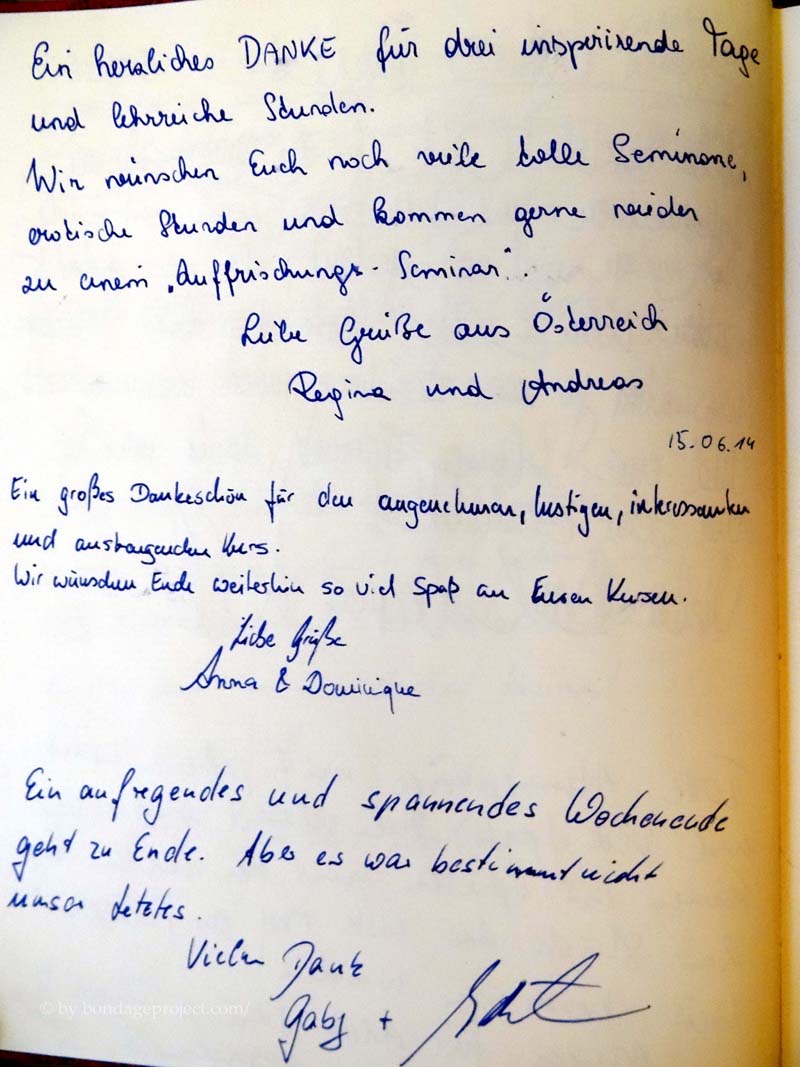 Ein herzliches DANKE für drei inspirirende Tage
und lehrreiche Stunden.
Wir wünschen Euch noch viele tolle Seminare,
erotische Stunden und kommen gerne wieder
zu einem „Auffrischungs-Seminar".
Liebe Grüße aus Österreich
Regina und Andreas
15.06.14
Ein großes Dankeschön für den angenehmen, lustigen, interessanten
und Kurs.
Wir wünschen Euch weiterhin so viel Spaß an Euren Kursen.
Liebe Grüße
Anna & Dominique
Ein aufregendes und spannendes Wochenende
geht zu Ende. Aber es war bestimmt nicht
unser letztes.
Vielen Dank
Gaby +
© by bondageproject.com/